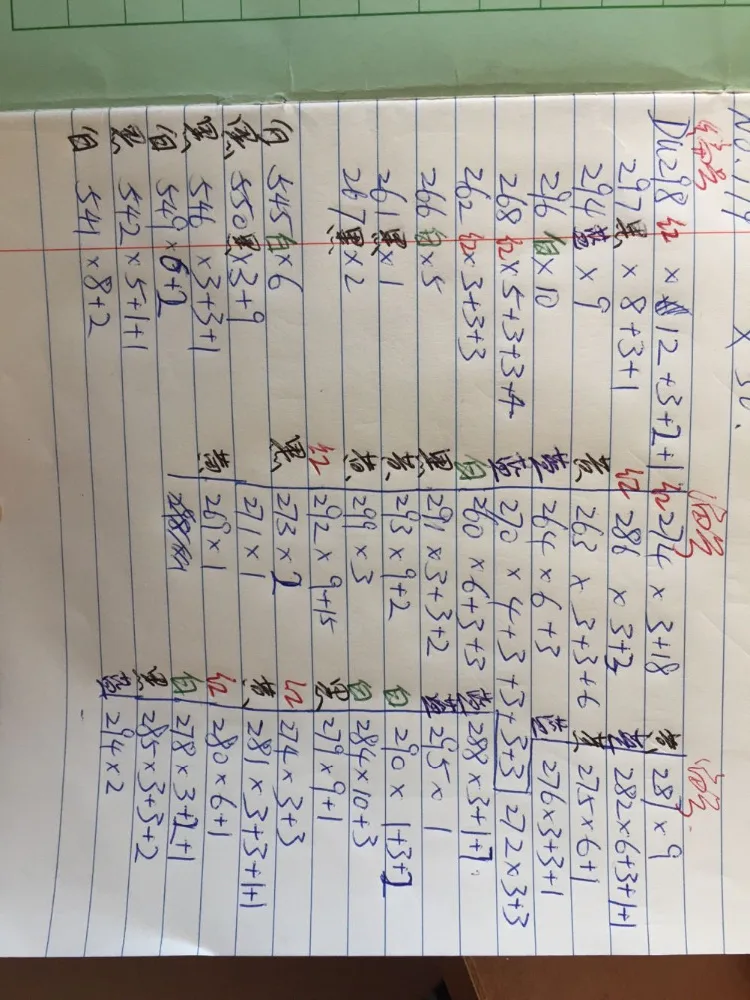 编号
DU298 红 × 12+3+2+1
297 黑 × 8+3+1
294 蓝 × 9
296 白 × 10
268 红 × 5+3+3+4
262 红 × 3+3+3
266 白 × 5
261 黑 × 1
267 黑 × 2
白 545 白 × 6
黑 550 黑 × 3+9
黑 546 × 3+3+1
白 549 × 6+2
黑 542 × 5+1+1
白 541 × 8+2
编号
红 274 × 3+18
红 286 × 3+3
黄 263 × 3+3+6
蓝 264 × 6+3
蓝 270 × 4+3+3+3+3
白 260 × 6+3+3
黑 291 × 3+3+2
黄 293 × 9+2
黄 299 × 3
红 292 × 9+15
黑 273 × 2
271 × 1
黄 269 × 1
编号
黄 287 × 9
蓝 282 × 6+3+1+1
275 × 6+1
蓝 276 × 3+3+1
272 × 3+3
蓝 288 × 3+1+7
蓝 295 × 1
白 290 × 1+3+2
白 284 × 10+3
黑 279 × 9+1
红 274 × 3+3
黄 281 × 3+3+1+1
红 280 × 6+1
白 278 × 3+2+1
黑 285 × 3+3+2
蓝 294 × 2